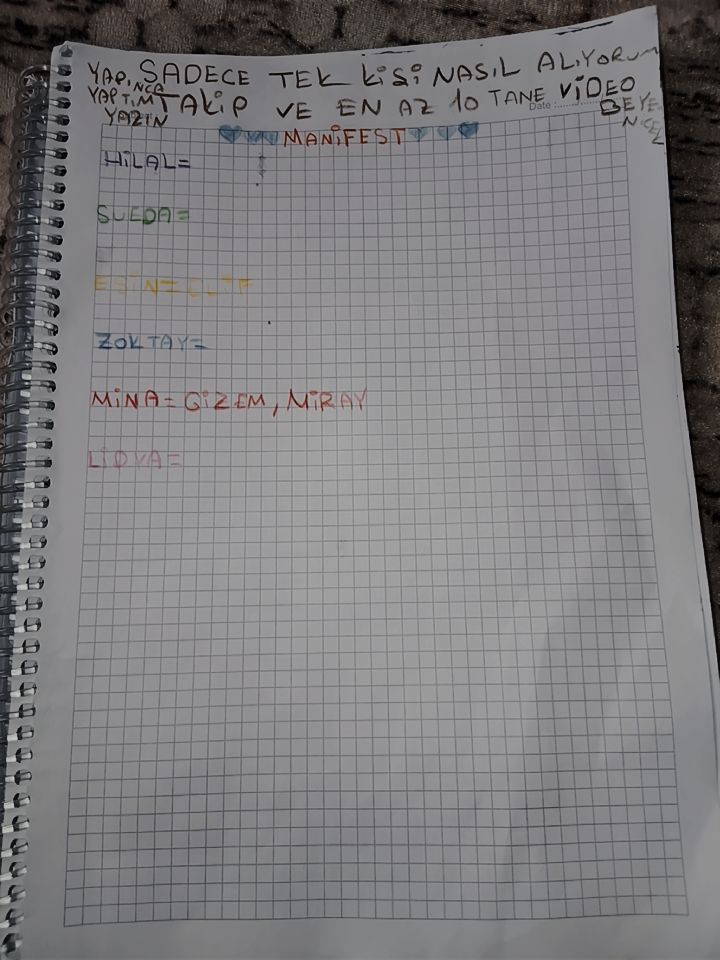 SADECE TEK KİŞİ NASIL ALIYORUM
TAKİP VE EN AZ 10 TANE VİDEO
BEYE
NİCEZ
YAPINCA
YAPTIM
YAZIN
Date :
MANİFEST
HİLAL=
SUEDA=
ESİN= ELİF
ZOKTAY=
MİNA= GİZEM, MİRAY
LİDYA=